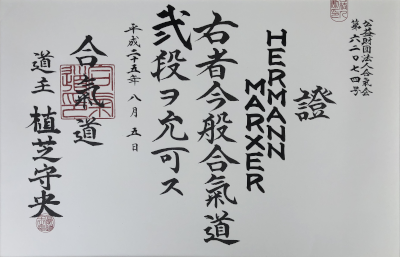 公益財団法人合気会
第六二〇七四号
證
HERMANN
MARXER
右者今般合氣道
弐段ヲ允可ス
平成二十五年八月五日
合氣道
道主 植芝守央